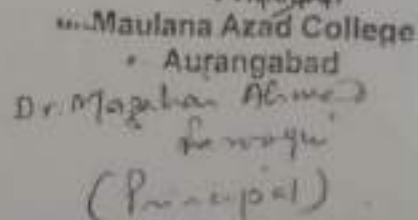 Maulana Azad College
Aurangabad
Dr. Mazahar Ahmed
(Principal)